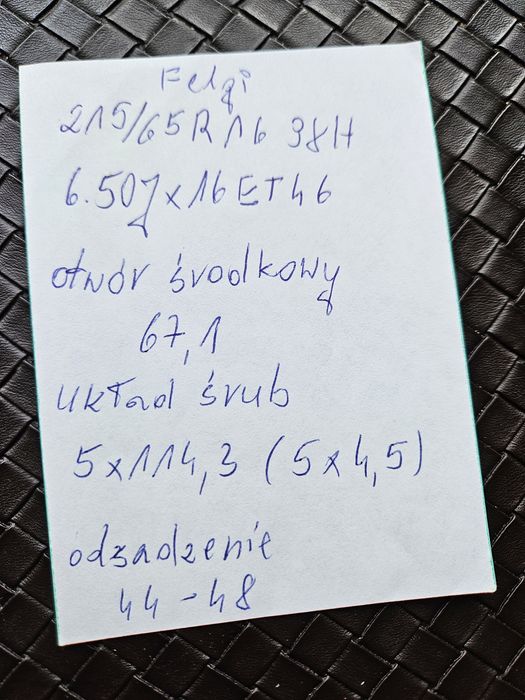 Felgi
215/65R16 98H
6.50J x 16 ET46
otwór środkowy
67,1
układ śrub
5x114,3 (5x4,5)
odsadzenie
44-48